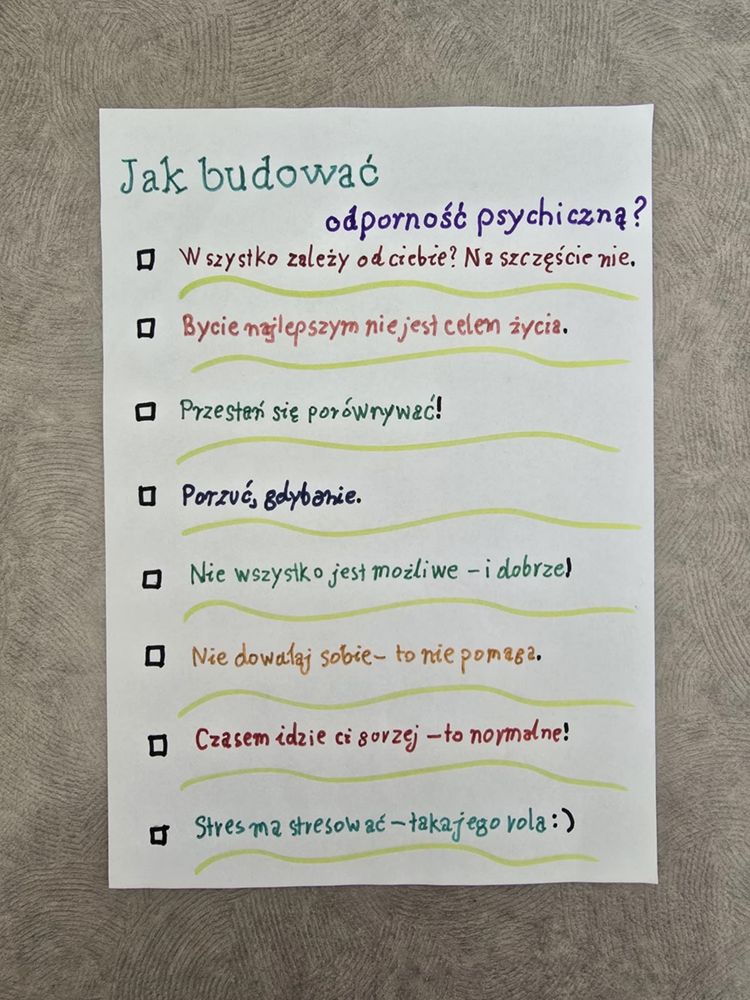 Jak budować
odporność psychiczną?
Wszystko zależy od ciebie? Na szczęście nie.
Bycie najlepszym nie jest celem życia.
Przestań się porównywać!
Porzuć, gdybanie.
Nie wszystko jest możliwe - i dobrze!
Nie dowalaj sobie - to nie pomaga.
Czasem idzie ci gorzej - to normalne!
Stres ma stresować - taka jego rola :)